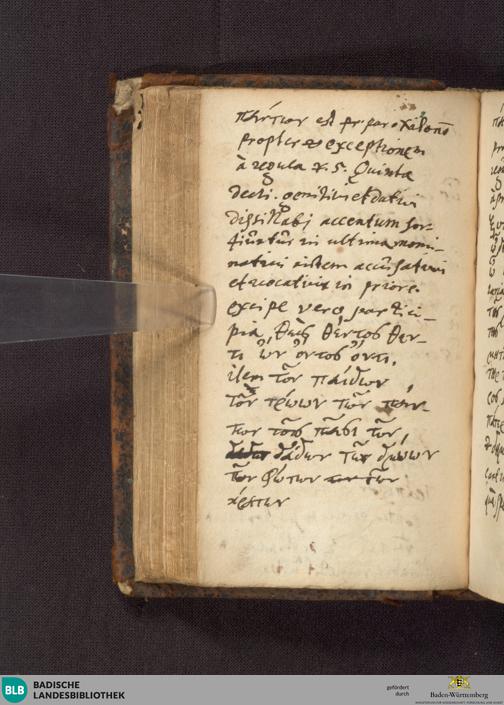 propter exceptionem
à regula x. 5. Quinta
decli. genitivi et dativi
dissillabi accentum sor-
tiuntur in ultima nomi-
nativi autem accusativi
et vocativi in priore
excipe vero partici-
pia θεὶς θέντος θέν-
τι ὢν ὄντος ὄντι,
item τῶν παίδων
τῶν τρώων τῶν
των τοῖς πᾶσι τῶν
δάδων τῶν δμώων
τῶν φώτων
BLB
BADISCHE
LANDESBIBLIOTHEK
gefördert
durch
Baden-Württemberg